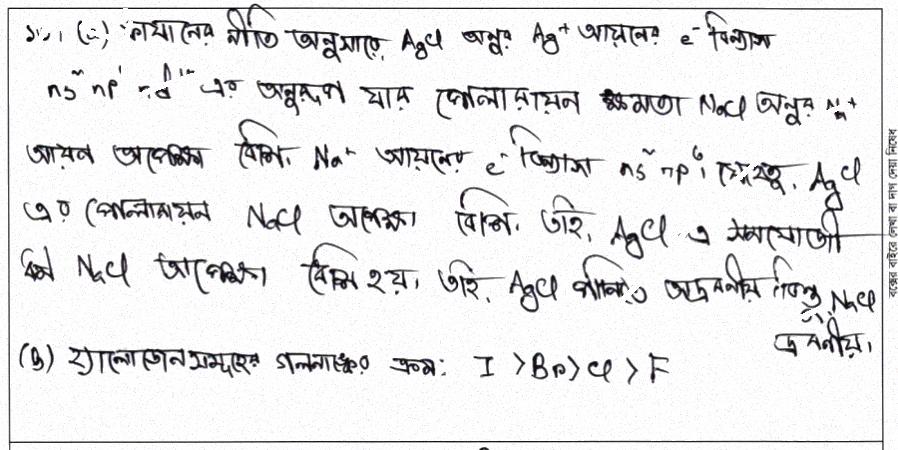 ১১। (a) ফাযানের নীতি অনুসারে, AgCl অনুর Ag⁺ আয়নের e⁻ বিন্যাস
ns² np⁶ nd¹⁰ এর অনুরূপ যার পোলারায়ন ক্ষমতা NaCl অনুর Na⁺
আয়ন অপেক্ষা বেশি। Na⁺ আয়নের e⁻ বিন্যাস ns² np⁶। যেহেতু, AgCl
এর পোলারায়ন NaCl অপেক্ষা বেশি, তাই, AgCl এ সমযোজী
ধর্ম NaCl অপেক্ষা বেশি হয়। তাই, AgCl পানিতে অদ্রবনীয় কিন্তু NaCl
দ্রবনীয়।
(b) হ্যালোজেনসমূহের গলনাঙ্কের ক্রম: I > Br > Cl > F
বক্সের বাইরে লেখা বা দাগ দেয়া নিষেধ